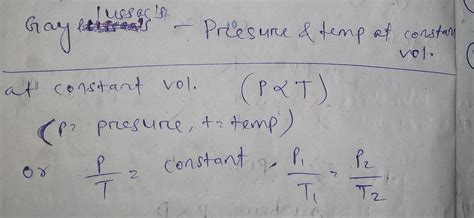 Gay lussac's - Presure & temp at constan
vol.
at constant vol. (P ∝ T)
(P= presure, t= temp)
or P/T = constant, P1/T1 = P2/T2